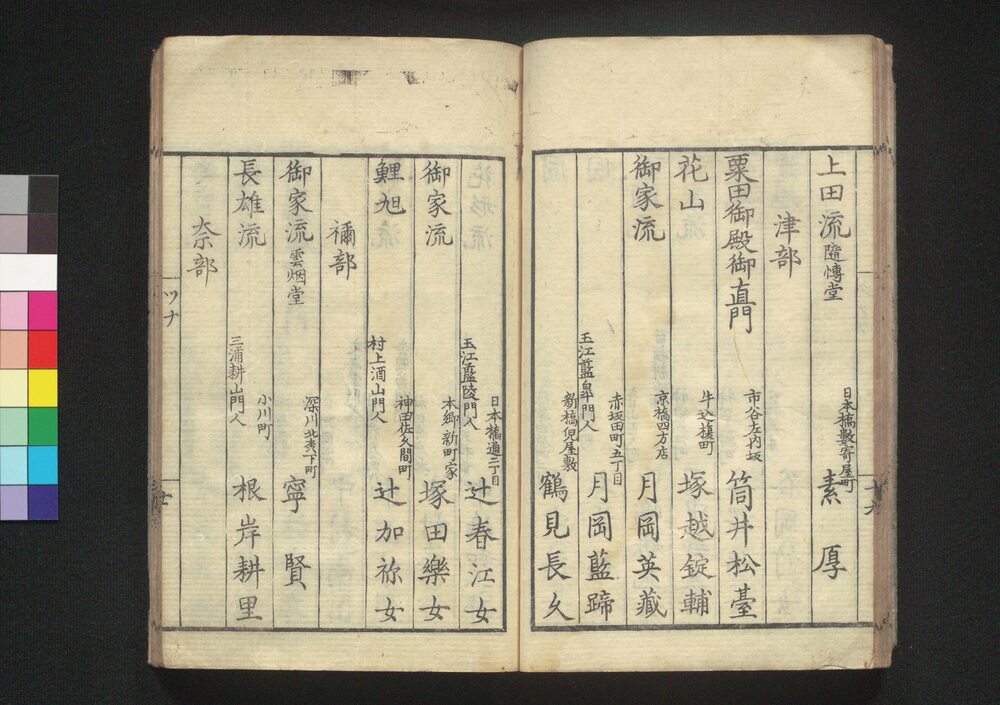 上田流 隨慱堂 日本橋數寄屋町 素厚
津部
粟田御殿御直門 市谷左内坂 筒井松臺
花山 牛込榎町 塚越錠輔
御家流 京橋四方店 月岡英藏
赤坂田町五丁目 月岡藍蹄
玉江藍皐門人 新橋仰屋敷 鶴見長久
玉江藍陵門人 日本橋通二丁目 辻春江女
御家流 本郷新町家 塚田樂女
鯉旭 村上酒山門人 神田佐久間町 辻加祢女
禰部
御家流 雲烟堂 深川北松下町 寧賢
長雄流 三浦耕山門人 小川町 根岸耕里
奈部
ツナ